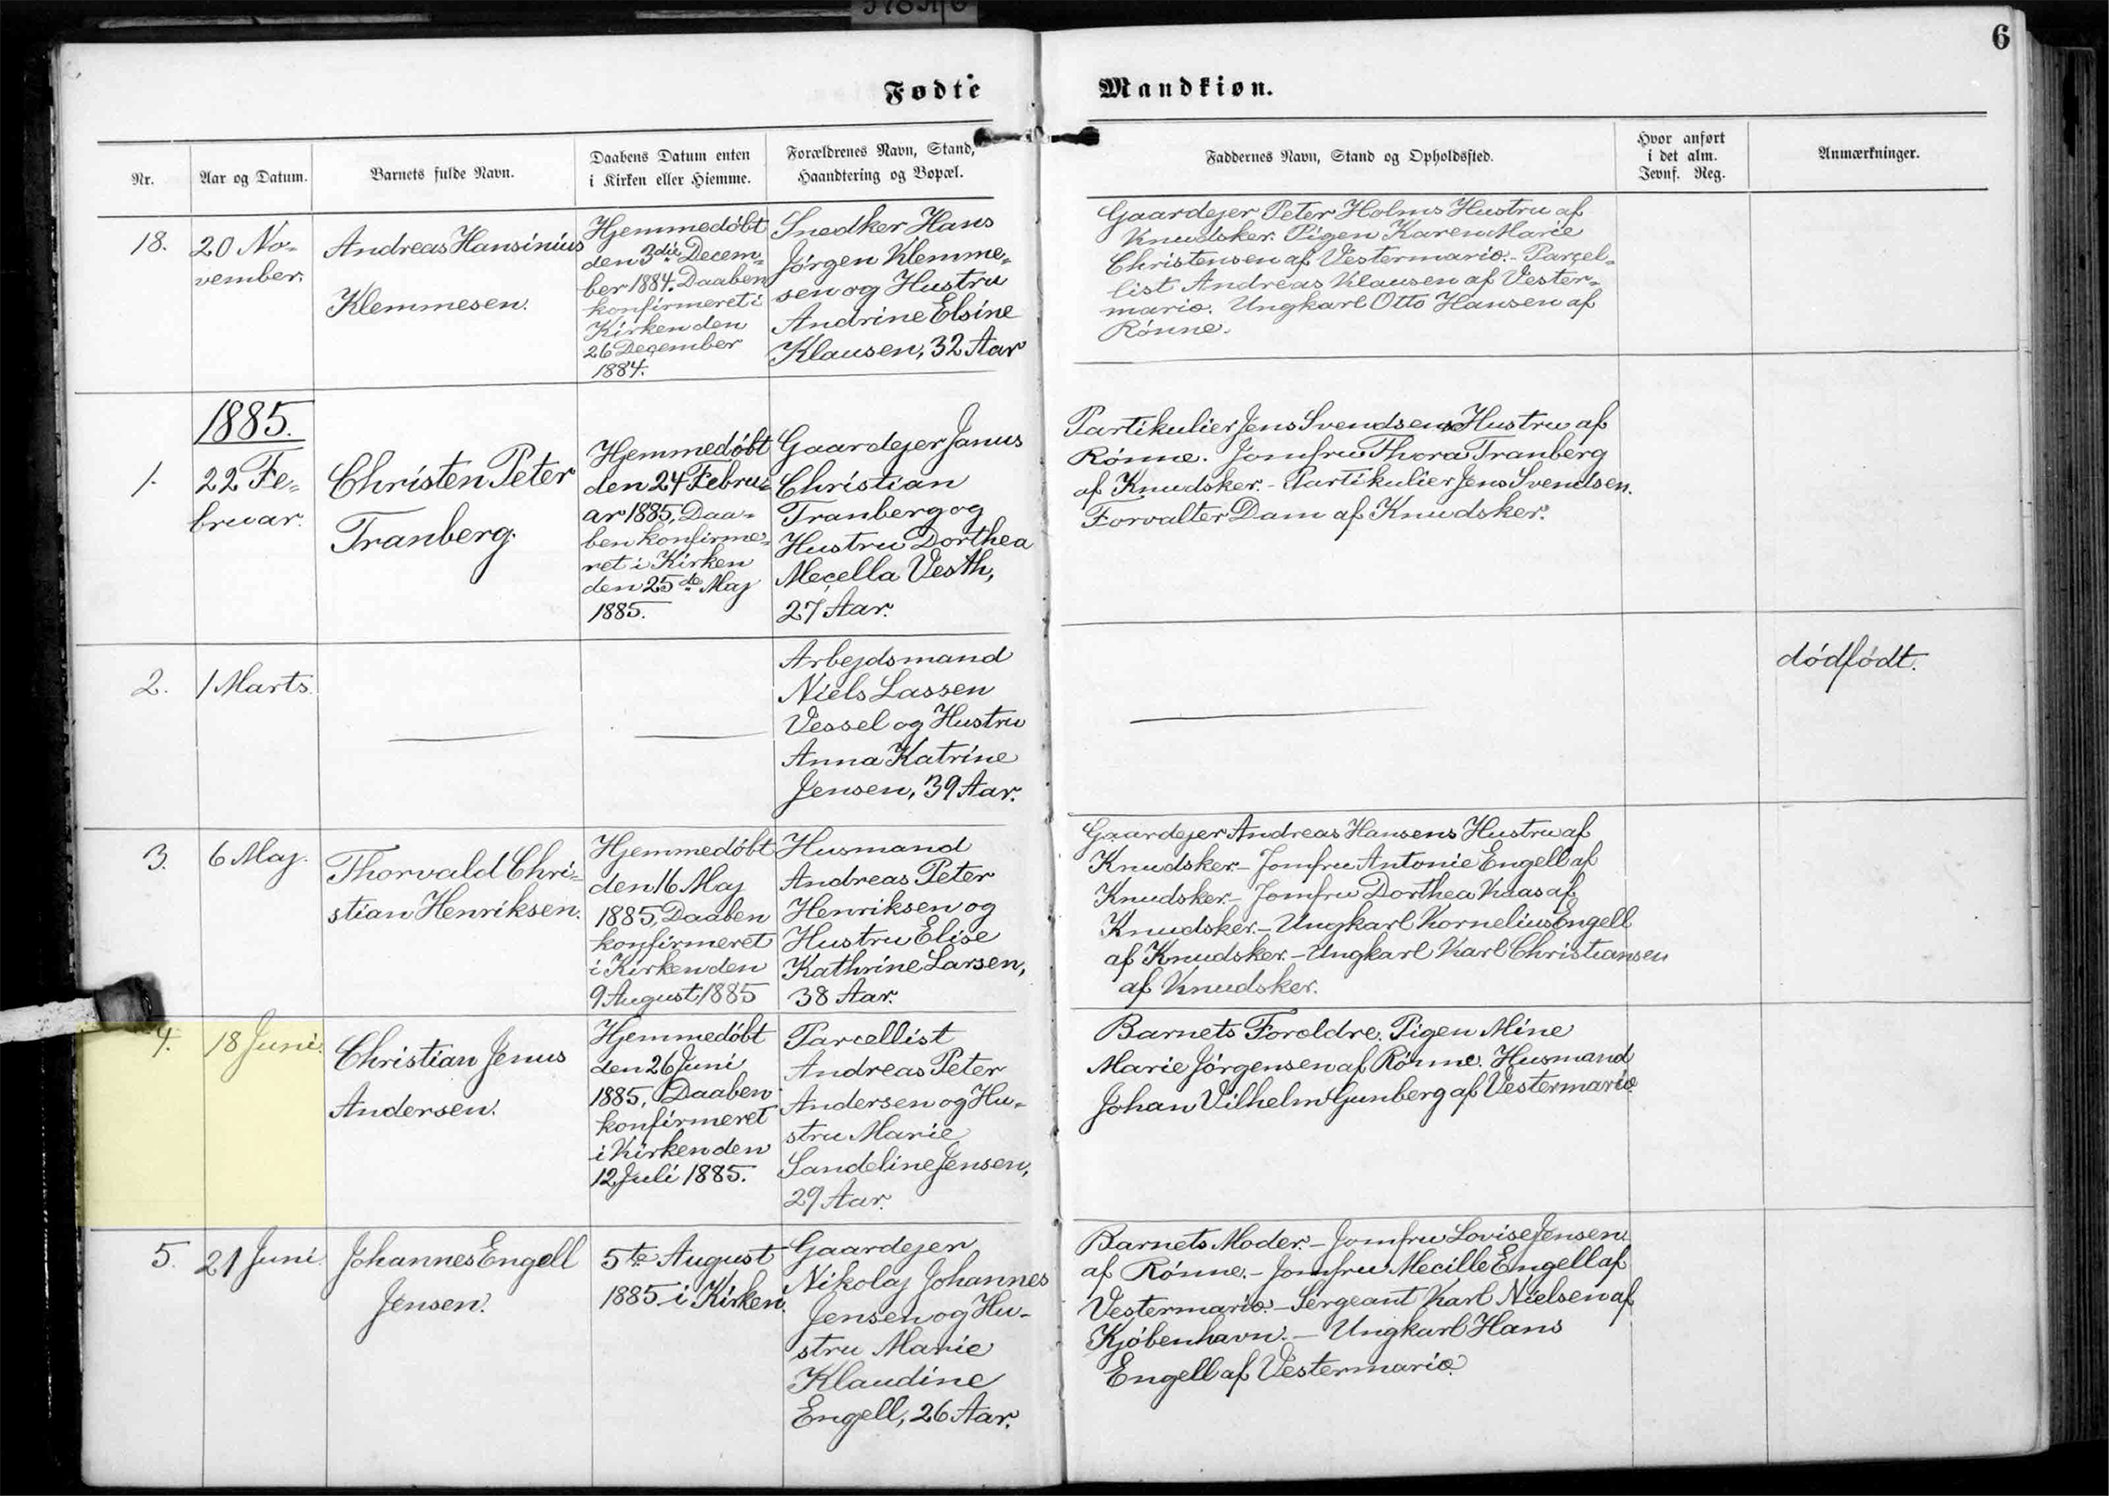 6
Fødte
Mandkiøn.
Nr.
Aar og Datum.
Barnets fulde Navn.
Daabens Datum enten
i Kirken eller Hiemme.
Forældrenes Navn, Stand,
Haandtering og Bopæl.
Faddernes Navn, Stand og Opholdssted.
Hvor anført
i det alm.
Jevnf. Reg.
Anmærkninger.
18.
20 No-
vember.
Andreas Hansinius
Klemmesen.
Hjemmedöbt
den 3die Decem-
ber 1884. Daaben
konfirmeret i
Kirken den
26 December
1884.
Snedker Hans
Jörgen Klemme-
sen og Hustru
Andrine Elsine
Klausen, 32 Aar
Gaardejer Peter Holms Hustru af
Knudsker. Pigen Karen Marie
Christensen af Vestermarie. - Parcel-
list Andreas Klausen af Vester-
marie. Ungkarl Otto Hansen af
Rönne.
1885.
1.
22 Fe-
bruar.
Christen Peter
Tranberg.
Hjemmedöbt
den 24 Febru-
ar 1885, Daa-
ben konfirme-
ret i Kirken
den 25de Maj
1885.
Gaardejer Janus
Christian
Tranberg og
Hustru Dorthea
Mecella Vesth,
27 Aar.
Partikulier Jens Svendsens Hustru af
Rönne. Jomfru Thora Tranberg
af Knudsker. - Partikulier Jens Svendsen.
Forvalter Dam af Knudsker.
2.
1 Marts.
Arbejdsmand
Niels Lassen
Vessel og Hustru
Anna Katrine
Jensen, 39 Aar.
dödfödt.
3.
6 Maj.
Thorvald Chri-
stian Henriksen.
Hjemmedöbt
den 16 Maj
1885, Daaben
konfirmeret
i Kirken den
9 August 1885
Husmand
Andreas Peter
Henriksen og
Hustru Elise
Kathrine Larsen,
38 Aar.
Gaardejer Andreas Hansens Hustru af
Knudsker. - Jomfru Antonie Engell af
Knudsker. - Jomfru Dorthea Kaas af
Knudsker. - Ungkarl Kornelius Engell
af Knudsker. - Ungkarl Karl Christiansen
af Knudsker.
4.
18 Juni.
Christian Jenus
Andersen.
Hjemmedöbt
den 26 Juni
1885, Daaben
konfirmeret
i Kirken den
12 Juli 1885.
Parcellist
Andreas Peter
Andersen og Hu-
stru Marie
Sandeline Jensen,
29 Aar.
Barnets Foroldre. Pigen Mine
Marie Jörgensen af Rönne. Husmand
Johan Vilhelm Gunberg af Vestermarie
5.
21 Juni.
Johannes Engell
Jensen.
5te August
1885 i Kirken.
Gaardejer
Nikolaj Johannes
Jensen og Hu-
stru Marie
Klaudine
Engell, 26 Aar.
Barnets Moder. - Jomfru Lovise Jensen
af Rönne. - Jomfru Mecille Engell af
Vestermarie. - Sergeant Karl Nielsen af
Kjöbenhavn. - Ungkarl Hans
Engell af Vestermarie.